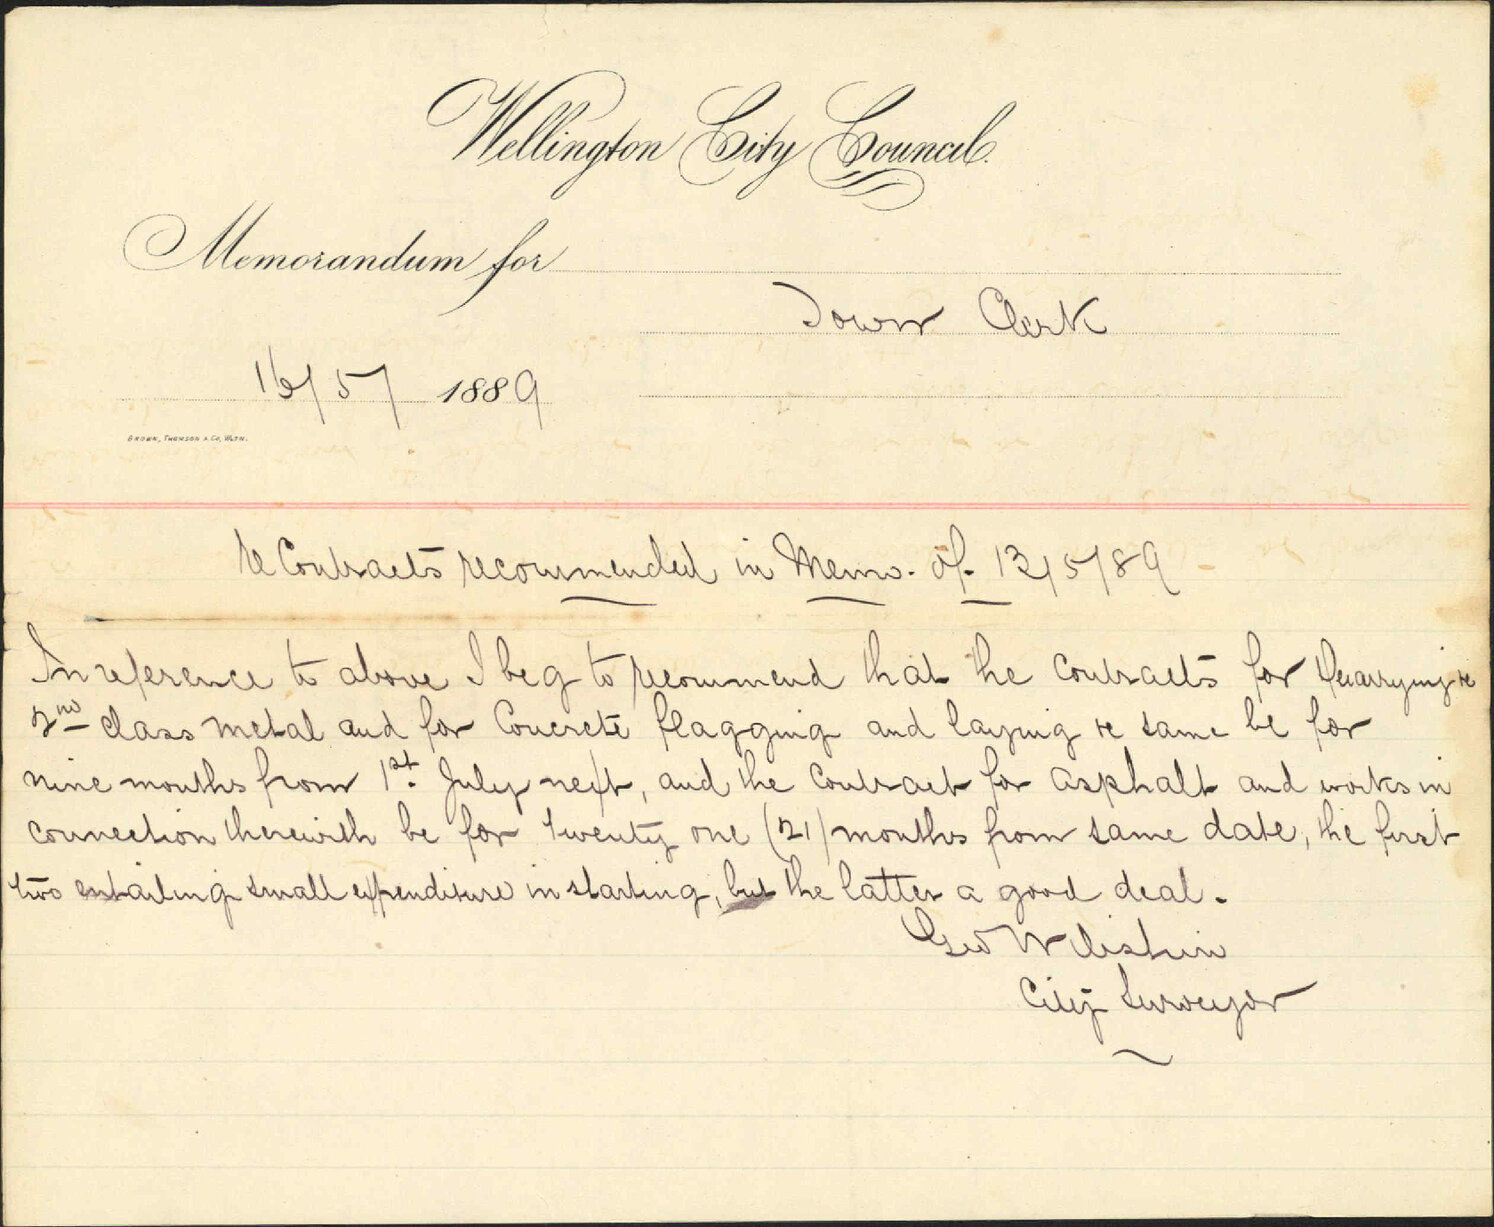 Wellington City Council.
Memorandum for
Town Clerk
16/5/ 1889
BROWN, THOMSON & Co, WGTN.
re Contracts recommended in Memo. of. 13/5/89
In reference to above I beg to recommend that the contracts for Quarrying re
2nd class metal and for Concrete flagging and laying re same be for
nine months from 1st. July next, and the contract for asphalt and works in
connection therewith be for twenty one (21) months from same date, the first
two entailing small expenditure in starting, but the latter a good deal.
Geo Wiltshire
City Surveyor